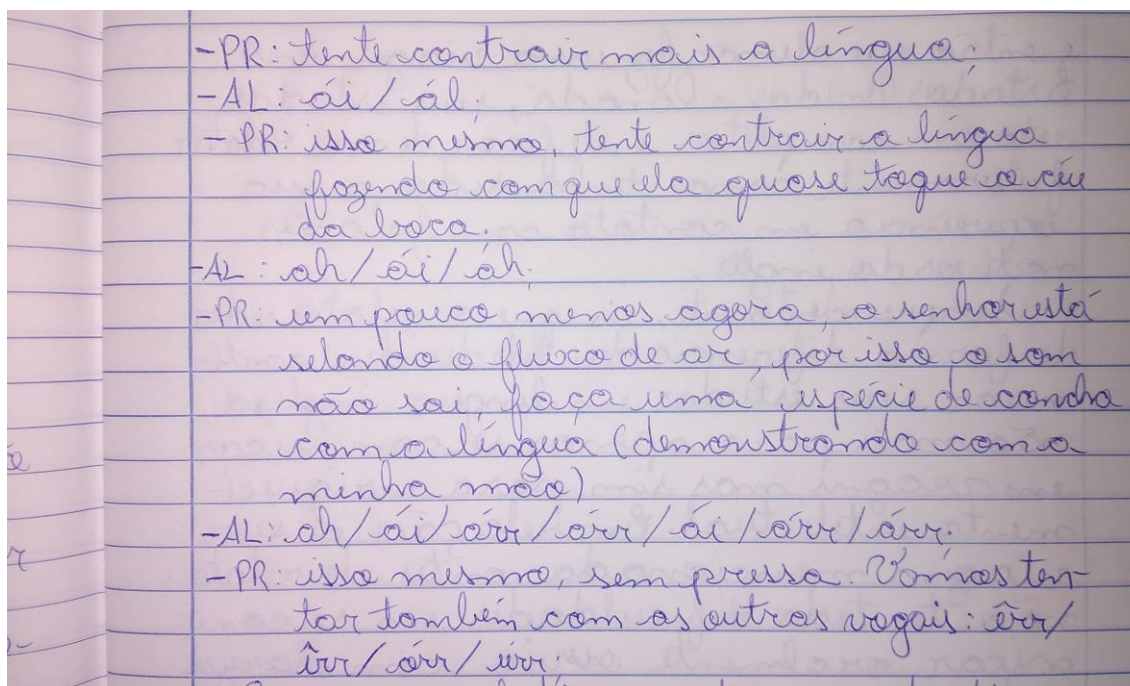 -PR: tente contrair mais a língua.
-AL: ái / ál.
- PR: isso mesmo, tente contrair a língua
fazendo com que ela quase toque o céu
da boca.
-AL: ah / ái / áh.
-PR: um pouco menos agora, o senhor está
selando o fluxo de ar, por isso o som
não sai, faça uma espécie de concha
com a língua (demonstrando com a
minha mão)
-AL: ah / ái / árr / árr / ái / árr / árr.
-PR: isso mesmo, sem pressa. Vamos ten-
tar também com as outras vogais: êrr /
îrr / órr / úrr.